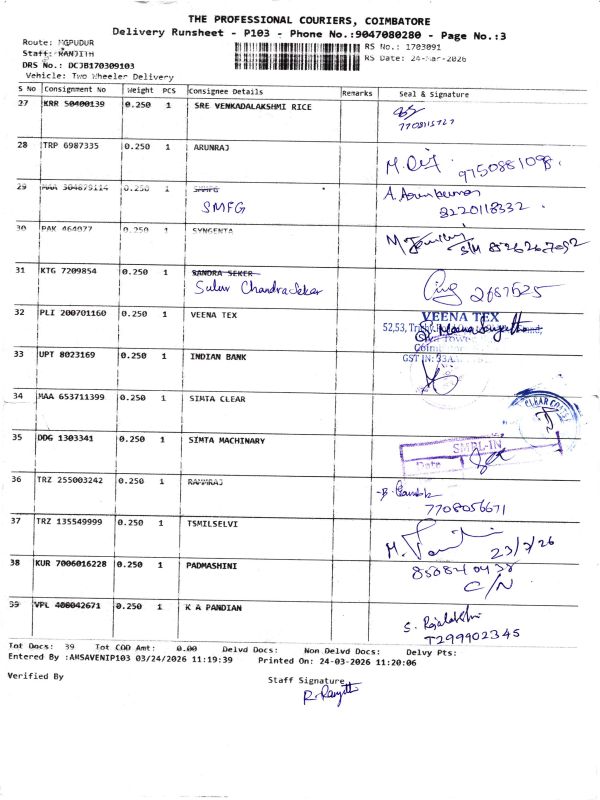 THE PROFESSIONAL COURIERS, COIMBATORE
Delivery Runsheet - P103 - Phone No.:9047080280 - Page No.:3
Route: MGPUDUR
RS No.: 1703091
Staff: RANJITH
RS Date: 24-Mar-2026
DRS No.: DCJB170309103
Vehicle: Two Wheeler Delivery
S No Consignment No Weight PCS Consignee Details Remarks Seal & Signature
27 KRR 50400139 0.250 1 SRE VENKADALAKSHMI RICE
28 TRP 6987335 0.250 1 ARUNRAJ
9750881098.
29 MAA 304879114 0.250 1 SMMFG
SMFG
A. Arunkumar
8220118332.
30 PAK 464077 0.250 1 SYNGENTA
31 KTG 7209854 0.250 1 SANDRA SEKER
Chandra Seker
2687625
32 PLI 200701160 0.250 1 VEENA TEX
VEENA TEX
52,53,
GST IN: 33A
33 UPT 8023169 0.250 1 INDIAN BANK
34 MAA 653711399 0.250 1 SIMTA CLEAR
CLEAR
35 DDG 1303341 0.250 1 SIMTA MACHINARY
Date
36 TRZ 255003242 0.250 1 RAMARAJ
7708056671
37 TRZ 135549999 0.250 1 TSMILSELVI
38 KUR 7006016228 0.250 1 PADMASHINI
8508440438
C/N
39 VPL 408042671 0.250 1 K A PANDIAN
S. Rajalakshmi
7299902345
Tot Docs: 39 Tot COD Amt: 0.00 Delvd Docs: Non Delvd Docs: Delvy Pts:
Entered By :AMSAVENIP103 03/24/2026 11:19:39 Printed On: 24-03-2026 11:20:06
Verified By
Staff Signature